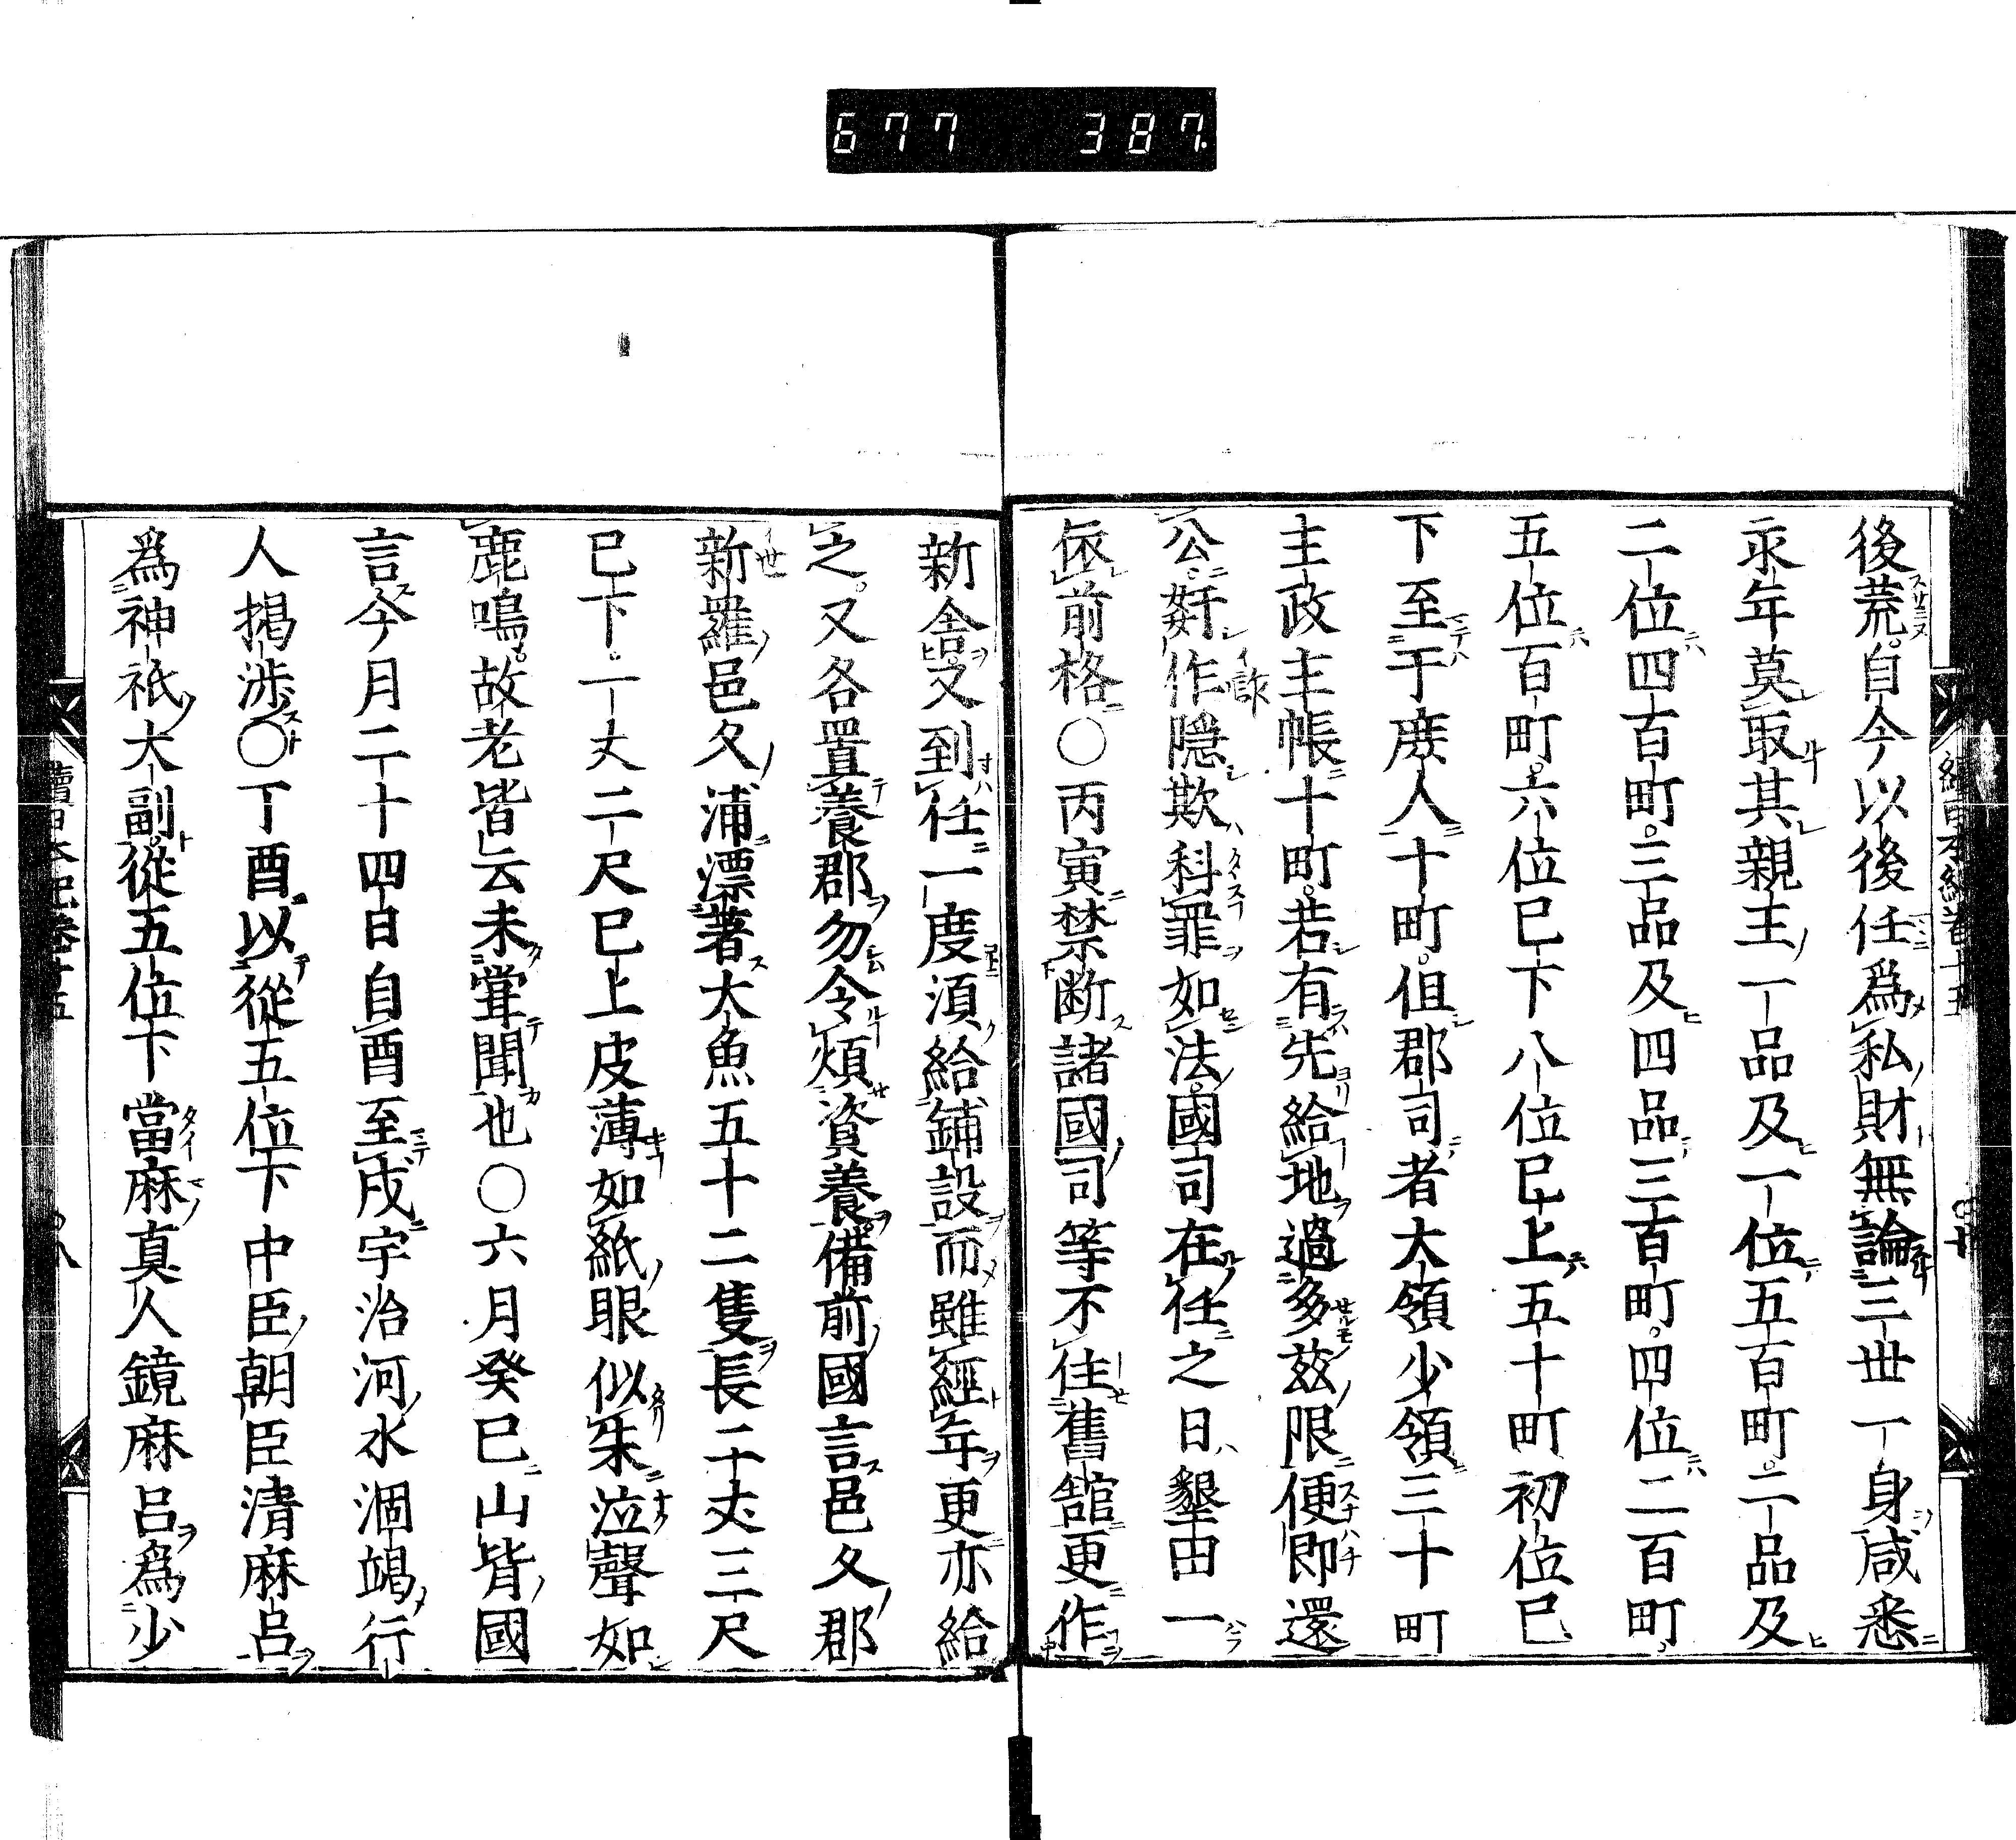 677 387
後荒自今以後任爲私財無論三世一身咸悉
永年莫取其親王一品及一位五百町二品及
二位四百町三品及四品三百町四位二百町
五位百町六位已下八位已上五十町初位已
下至于庶人十町但郡司者大領少領三十町
主政主帳十町若有先給地過多茲限便即還
公姧作隱欺科罪如法國司在任之日墾田一
依前格〇丙寅禁断諸國司等不住舊館更作
新舍又到任一度須給鋪設而雖經年更亦給
之又各置養郡勿令煩資養備前國言邑久郡
新羅邑久浦漂著大魚五十二隻長二丈三尺
已下一丈二尺已上皮薄如紙眼似朱泣聲如
鹿鳴故老皆云未嘗聞也〇六月癸巳山背國
言今月二十四日自酉至戌宇治河水涸竭行
人揭渉〇丁酉以從五位下中臣朝臣清麻呂
爲神祇大副從五位下當麻真人鏡麻呂爲少
續日本紀卷十五